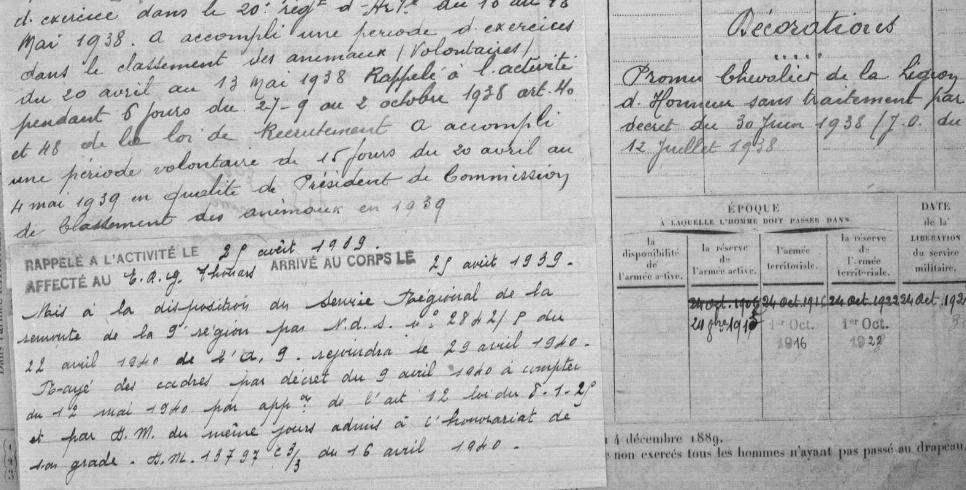 d'exercice dans le 20e régt d'Artie du 10 au 18
Mai 1938. A accompli une période d'exercices
dans le classement des animaux (Volontaires)
du 20 avril au 13 Mai 1938 Rappelé à l'activité
pendant 6 jours du 27-9 au 2 octobre 1938 art. 40
et 48 de la loi de Recrutement A accompli
une période volontaire de 15 jours du 20 avril au
4 mai 1939 en qualité de Président de Commission
de Classement des animaux en 1939
RAPPELÉ A L'ACTIVITÉ LE 25 août 1939.
AFFECTÉ AU E.R.G. Thouars ARRIVÉ AU CORPS LE 25 août 1939.
Mis à la disposition du Service Régional de la
remonte de la 9e région par N.d.S. no 2842/P du
22 avril 1940 de l'a, 9. rejoindra le 29 avril 1940.
Rayé des cadres par décret du 9 avril 1940 à compter
du 12 mai 1940 par appon de l'art 12 loi du 8-1-25
et par D.M. du même jours admis à l'honorariat de
son grade. D.M. 13797 C 3/3 du 16 avril 1940.
Décorations
Promu Chevalier de la Légion
d'Honneur sans traitement par
décret du 30 Juin 1938 (J.O. du
12 Juillet 1938
ÉPOQUE
À LAQUELLE L'HOMME DOIT PASSER DANS
DATE
de la
LIBÉRATION
du service
militaire.
la
disponibilité
de
l'armée active.
la réserve
de
l'armée active.
l'armée
territoriale.
la réserve
de
l'armée
territoriale.
24 Oct. 1906 24 Oct. 1916 24 Oct. 1922 24 Oct. 192
1er Oct. 1er Oct.
1916 1928
4 décembre 1889.
non exercés tous les hommes n'ayant pas passé au drapeau.